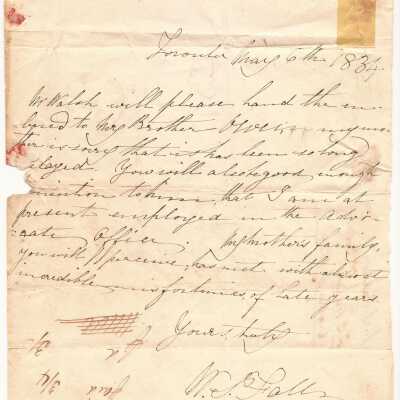 Toronto May 6th 1834
Mr Walsh will please hand the in
to my Brother my mo
ther is sorry that it has been so long
delayed. You will also be good enough
mention to him, that I am at
present employed in the Advo
cate Office. My Mother's family,
you will perceive, has met with almost
incredible misfortunes, of late years
Yours truly
W. S. Falls
paid